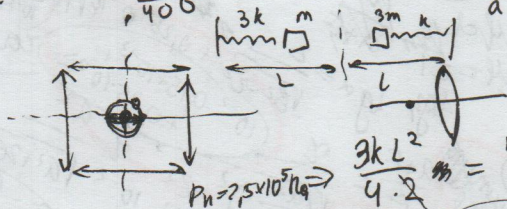 400 a
3k m 3m k
L L
Pн=2,5×10⁵Па⇒ 3kL²/4·2 m =